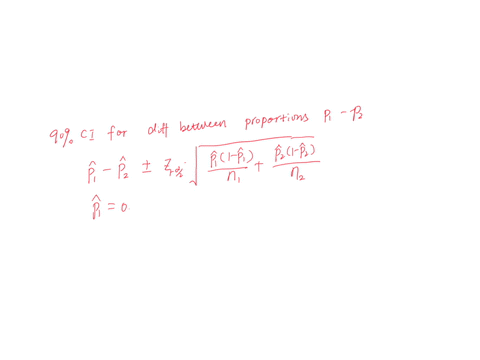 90% CI for diff between proportions p₁ - p₂
p̂₁ - p̂₂ ± Z √( p̂₁(1-p̂₁) / n₁ + p̂₂(1-p̂₂) / n₂ )
p̂₁ = 0